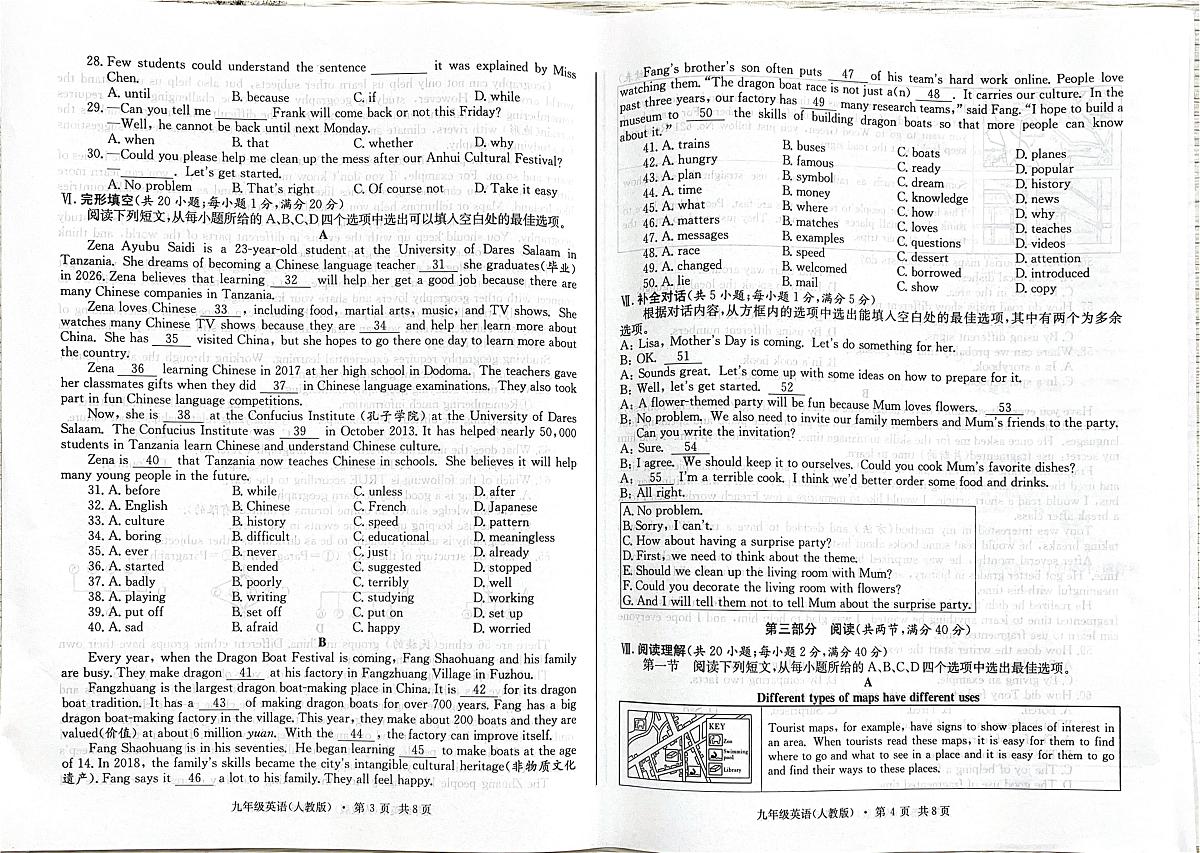 28. Few students could understand the sentence ________ it was explained by Miss
Chen.
A. until B. because C. if D. while
29. —Can you tell me ________ Frank will come back or not this Friday?
—Well, he cannot be back until next Monday.
A. when B. that C. whether D. why
30. —Could you please help me clean up the mess after our Anhui Cultural Festival?
—________. Let's get started.
A. No problem B. That's right C. Of course not D. Take it easy
Ⅵ. 完形填空(共 20 小题;每小题 1 分,满分 20 分)
阅读下列短文,从每小题所给的 A、B、C、D 四个选项中选出可以填入空白处的最佳选项。
A
Zena Ayubu Saidi is a 23-year-old student at the University of Dares Salaam in
Tanzania. She dreams of becoming a Chinese language teacher 31 she graduates(毕业)
in 2026. Zena believes that learning 32 will help her get a good job because there are
many Chinese companies in Tanzania.
Zena loves Chinese 33 , including food, martial arts, music, and TV shows. She
watches many Chinese TV shows because they are 34 and help her learn more about
China. She has 35 visited China, but she hopes to go there one day to learn more about
the country.
Zena 36 learning Chinese in 2017 at her high school in Dodoma. The teachers gave
her classmates gifts when they did 37 in Chinese language examinations. They also took
part in fun Chinese language competitions.
Now, she is 38 at the Confucius Institute (孔子学院) at the University of Dares
Salaam. The Confucius Institute was 39 in October 2013. It has helped nearly 50,000
students in Tanzania learn Chinese and understand Chinese culture.
Zena is 40 that Tanzania now teaches Chinese in schools. She believes it will help
many young people in the future.
31. A. before B. while C. unless D. after
32. A. English B. Chinese C. French D. Japanese
33. A. culture B. history C. speed D. pattern
34. A. boring B. difficult C. educational D. meaningless
35. A. ever B. never C. just D. already
36. A. started B. ended C. suggested D. stopped
37. A. badly B. poorly C. terribly D. well
38. A. playing B. writing C. studying D. working
39. A. put off B. set off C. put on D. set up
40. A. sad B. afraid C. happy D. worried
B
Every year, when the Dragon Boat Festival is coming, Fang Shaohuang and his family
are busy. They make dragon 41 at his factory in Fangzhuang Village in Fuzhou.
Fangzhuang is the largest dragon boat-making place in China. It is 42 for its dragon
boat tradition. It has a 43 of making dragon boats for over 700 years. Fang has a big
dragon boat-making factory in the village. This year, they make about 200 boats and they are
valued(价值) at about 6 million yuan. With the 44 , the factory can improve itself.
Fang Shaohuang is in his seventies. He began learning 45 to make boats at the age
of 14. In 2018, the family's skills became the city's intangible cultural heritage(非物质文化
遗产). Fang says it 46 a lot to his family. They all feel happy.
九年级英语(人教版) · 第 3 页 共 8 页
Fang's brother's son often puts 47 of his team's hard work online. People love
watching them. "The dragon boat race is not just a(n) 48 . It carries our culture. In the
past three years, our factory has 49 many research teams," said Fang. "I hope to build a
museum to 50 the skills of building dragon boats so that more people can know
about it."
41. A. trains B. buses C. boats D. planes
42. A. hungry B. famous C. ready D. popular
43. A. plan B. symbol C. dream D. history
44. A. time B. money C. knowledge D. news
45. A. what B. where C. how D. why
46. A. matters B. matches C. loves D. teaches
47. A. messages B. examples C. questions D. videos
48. A. race B. speed C. dessert D. attention
49. A. changed B. welcomed C. borrowed D. introduced
50. A. lie B. mail C. show D. copy
Ⅶ. 补全对话(共 5 小题;每小题 1 分,满分 5 分)
根据对话内容,从方框内的选项中选出能填入空白处的最佳选项,其中有两个为多余
选项。
A: Lisa, Mother's Day is coming. Let's do something for her.
B: OK. 51
A: Sounds great. Let's come up with some ideas on how to prepare for it.
B: Well, let's get started. 52
A: A flower-themed party will be fun because Mum loves flowers. 53
B: No problem. We also need to invite our family members and Mum's friends to the party.
Can you write the invitation?
A: Sure. 54
B: I agree. We should keep it to ourselves. Could you cook Mum's favorite dishes?
A: 55 I'm a terrible cook. I think we'd better order some food and drinks.
B: All right.
A. No problem.
B. Sorry, I can't.
C. How about having a surprise party?
D. First, we need to think about the theme.
E. Should we clean up the living room with Mum?
F. Could you decorate the living room with flowers?
G. And I will tell them not to tell Mum about the surprise party.
第三部分 阅读(共两节,满分 40 分)
Ⅷ. 阅读理解(共 20 小题;每小题 2 分,满分 40 分)
第一节 阅读下列短文,从每小题所给的 A、B、C、D 四个选项中选出最佳选项。
A
Different types of maps have different uses
KEY
Zoo
Swimming
pool
Library
Tourist maps, for example, have signs to show places of interest in
an area. When tourists read these maps, it is easy for them to find
where to go and what to see in a place and it is easy for them to go
and find their ways to these places.
九年级英语(人教版) · 第 4 页 共 8 页